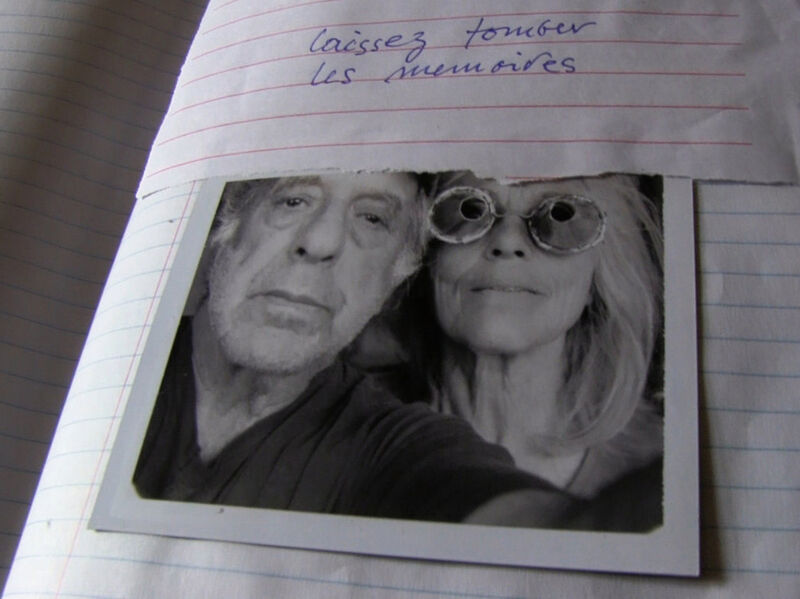 laissez tomber
les memoires